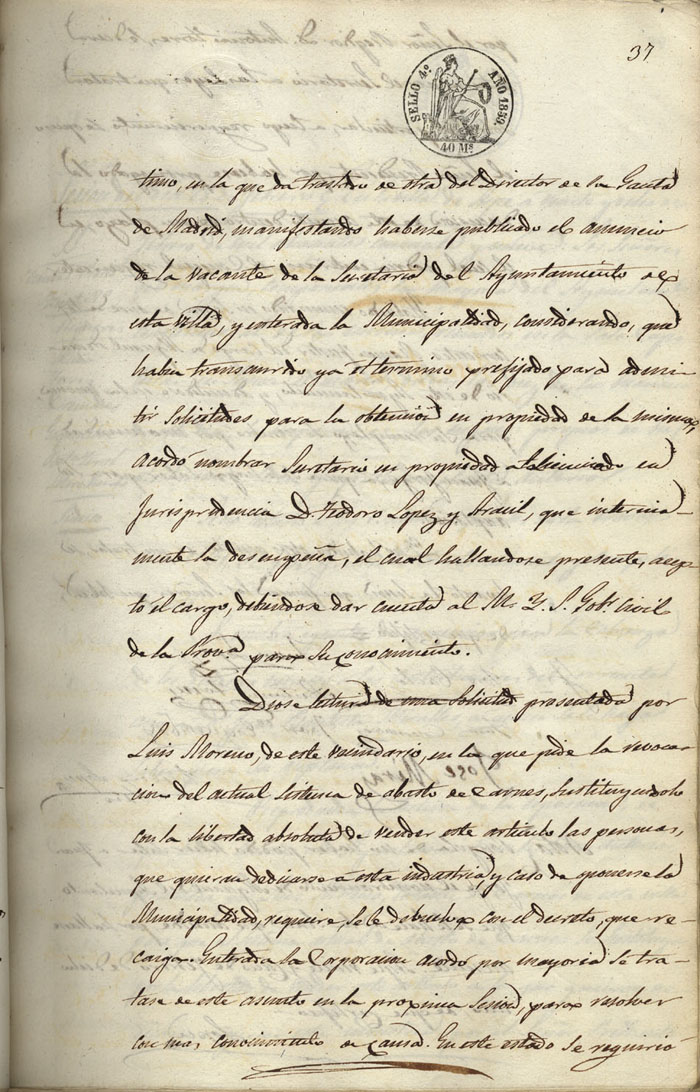 37
SELLO 4º AÑO 1859.
40 Ms.
timo, en la que da traslado de otra del Director de la Gaceta
de Madrid, manifestando haberse publicado el anuncio
de la vacante de la Secretaria del Ayuntamiento de
esta villa, y enterada la Municipalidad, considerando, que
habia transcurrido ya el termino prefijado para admi-
tir solicitudes para la obtencion en propiedad de la misma,
acordó nombrar Secretario en propiedad al Licenciado en
Jurisprudencia D. Teodoro Lopez y Arauil, que interina-
mente la desempeña, el cual hallandose presente, acep-
tó el cargo, debiendose dar cuenta al M. Y. S. Gobr. Civil
de la Prova. para su conocimiento.
Diose lectura de una solicitud presentada por
Luis Moreno, de este vecindario, en la que pide la revoca-
cion del actual sistema de abasto de Carnes, sustituyendolo
con la libertad absoluta de vender este articulo las personas,
que quieran dedicarse a esta industria, y caso de oponerse la
Municipalidad, requiere, se le debuelva con el decreto, que re-
caiga. Enterada la Corporacion acordó por mayoria se tra-
tase de este asunto en la proxima Sesion, para resolver
con mas conocimiento de causa. En este estado se requirió